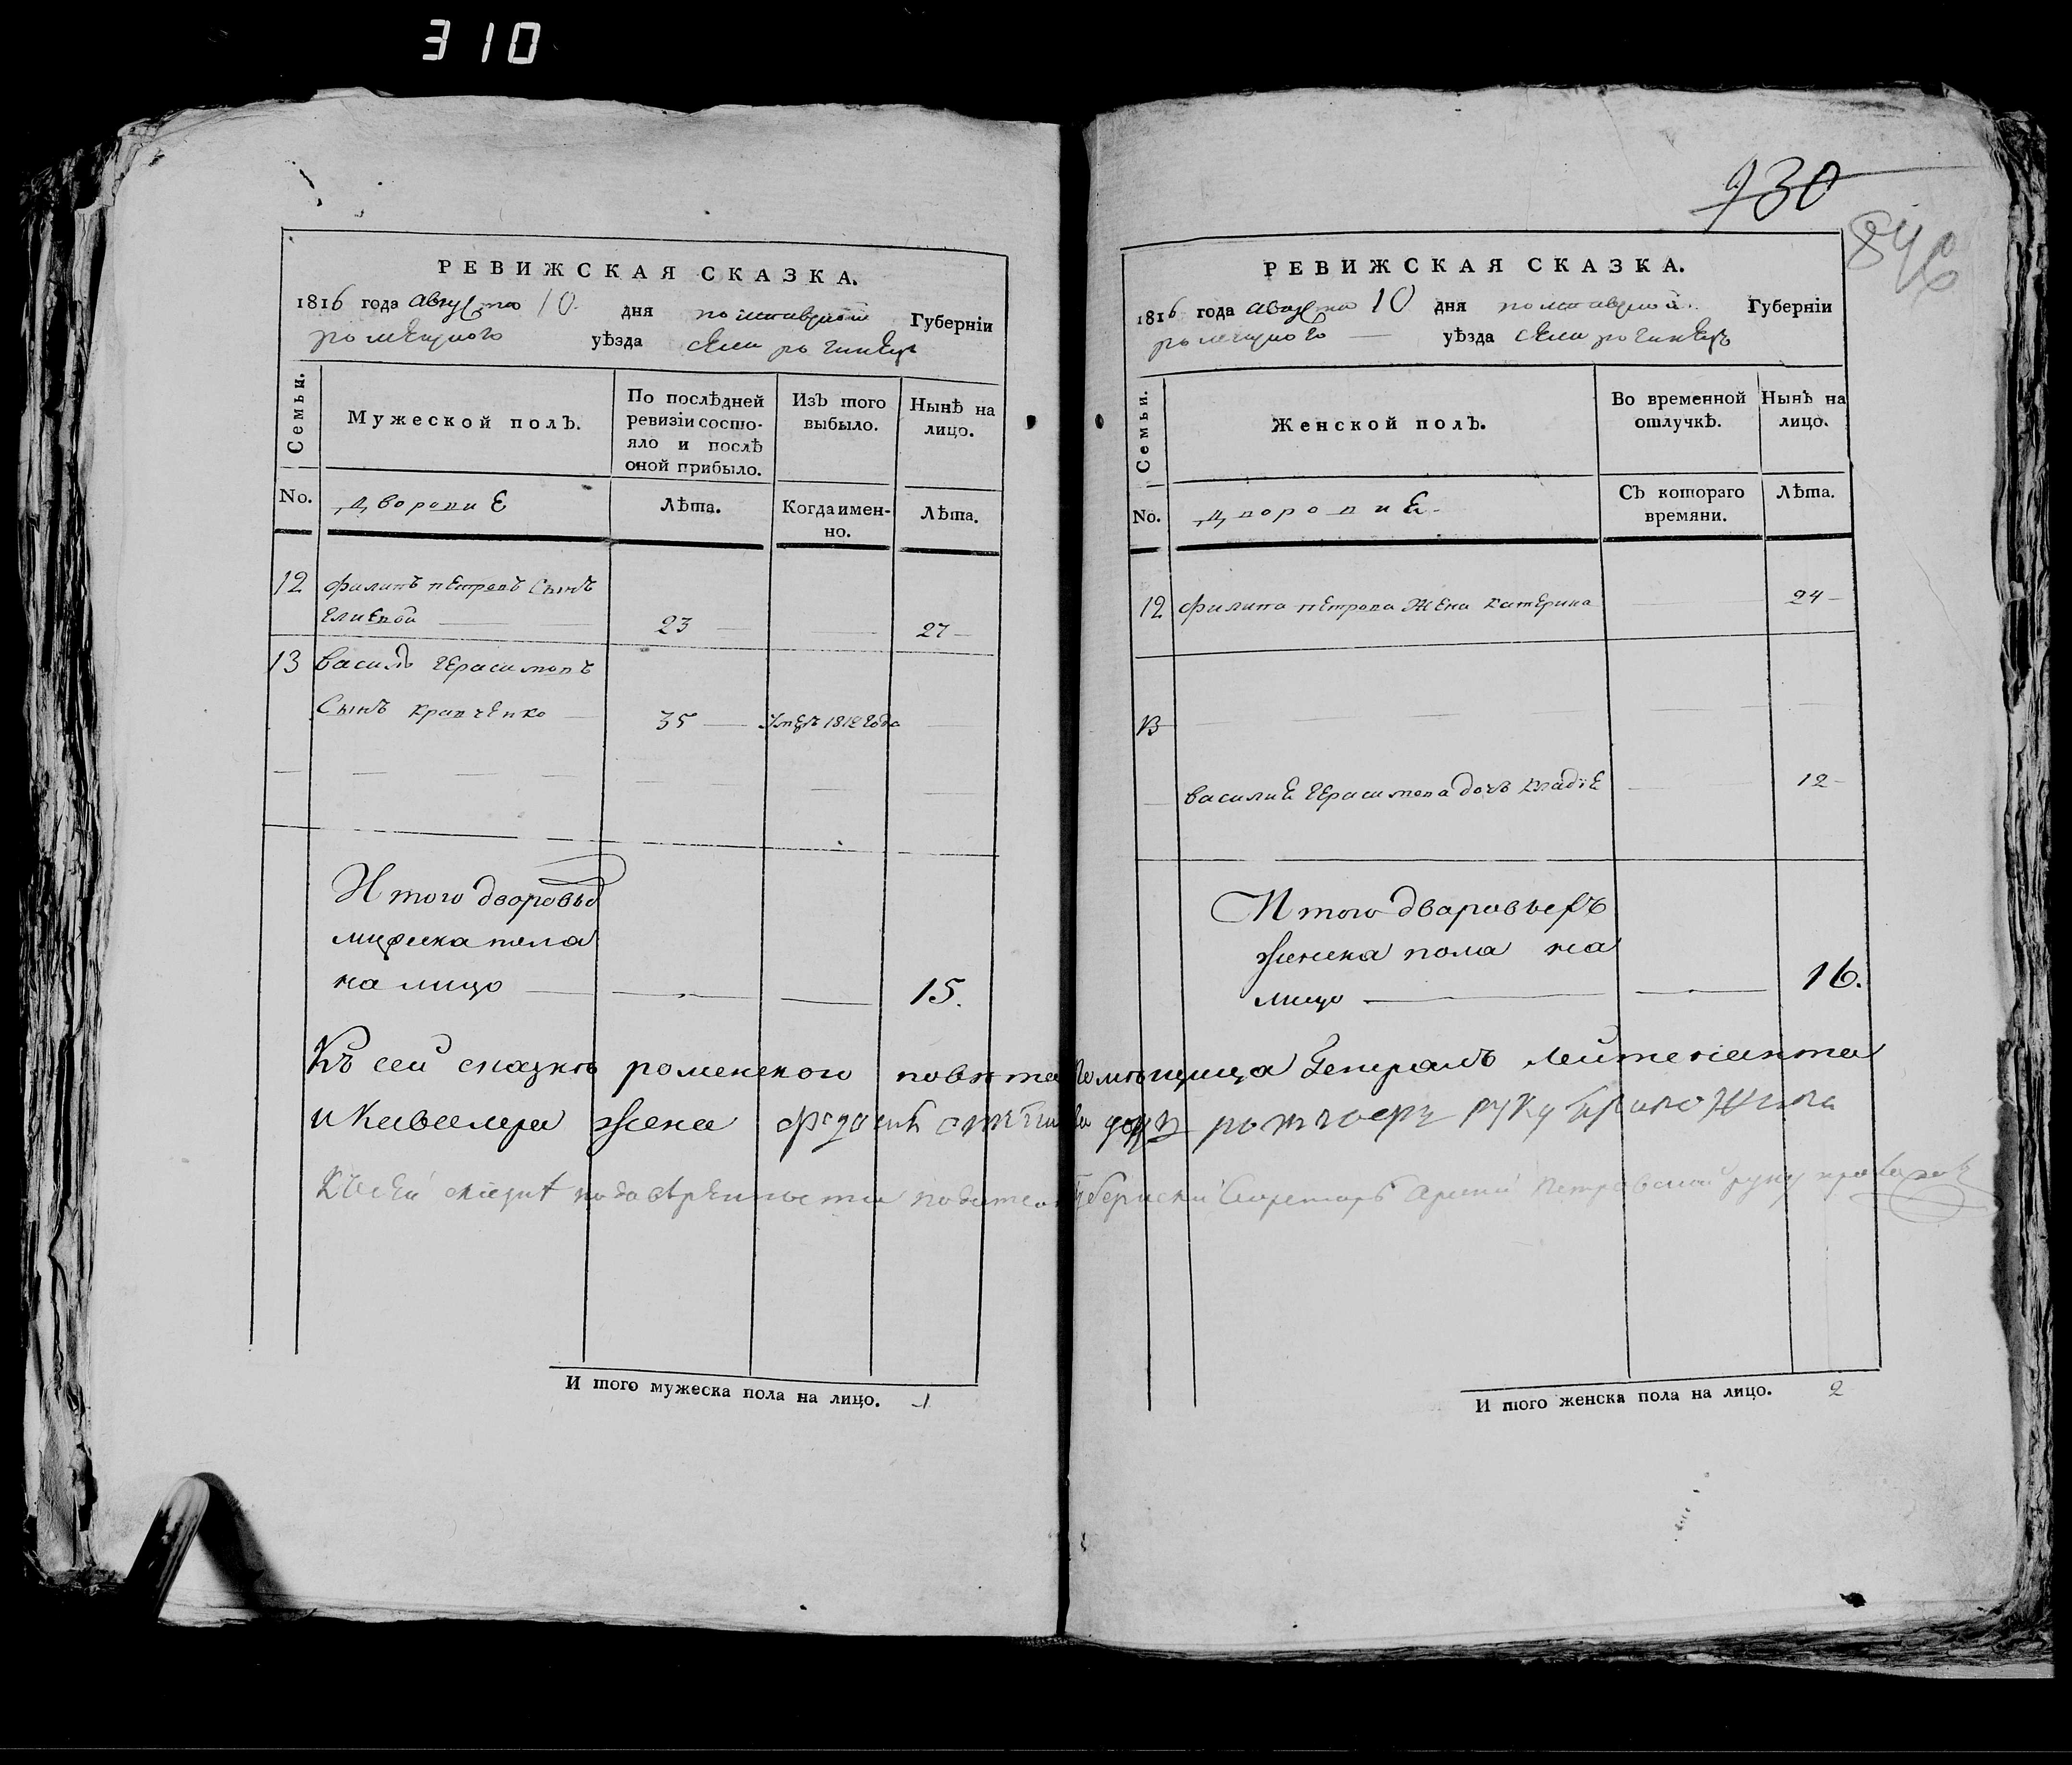 310
930
846
РЕВИЖСКАЯ СКАЗКА.
1816 года августа 10 дня полтавской Губерніи
роменского уѣзда села
Семьи.
Мужеской полъ.
По послѣдней ревизіи состояло и послѣ оной прибыло.
Изъ того выбыло.
Нынѣ на лицо.
No.
дворовие
Лѣта.
Когда именно.
Лѣта.
12 филипъ петровъ Сынъ
23 27
13 василь герасимовъ
Сынъ кравченко 35 1812 года
Итого дворовых
мужеска пола
на лицо 15.
И того мужеска пола на лицо. 1
РЕВИЖСКАЯ СКАЗКА.
1816 года августа 10 дня полтавской Губерніи
роменского уѣзда села
Семьи.
Женской полъ.
Во временной отлучкѣ.
Нынѣ на лицо.
No.
дворовие
Съ котораго времяни.
Лѣта.
12 филипа петрова жена катерина 24
13
василия герасимова дочь 12
Итого дворовыхъ
женска пола на
лицо 16.
Къ сей сказкѣ роменского повѣта помѣщица Генералъ лейтенанта
и Кавалера жена руку приложила
Къ сей сказкѣ Губернски Секретарь Петровской руку
И того женска пола на лицо. 2